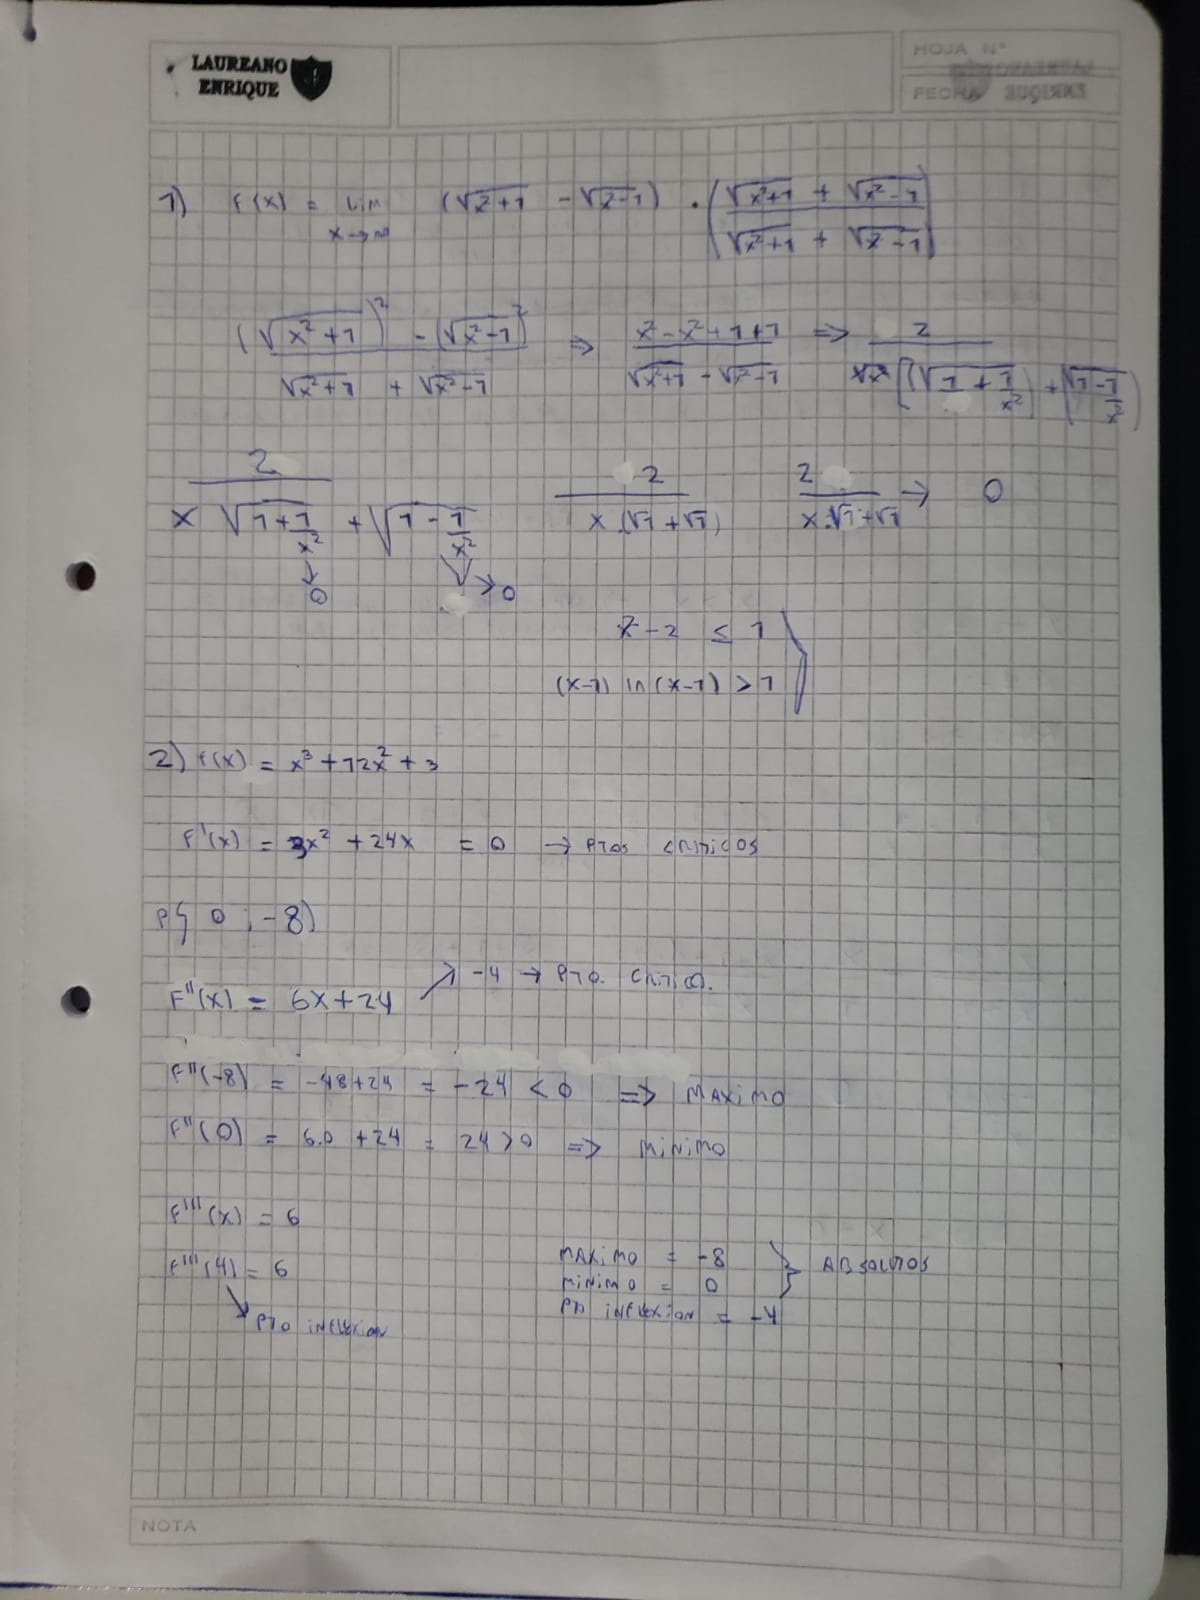 LAUREANO
ENRIQUE
HOJA N°
FECHA
1) F(x) = Lim x→∞ (√x²+1 - √x²-1) · (√x²+1 + √x²-1 / √x²+1 + √x²-1)
(√x²+1)² - (√x²-1)² / √x²+1 + √x²-1 ⇒ x²-x²+1+1 / √x²+1 - √x²-1 ⇒ 2 / √x² [(√1+1/x²) + (√1-1/x²)]
2 / x √1+1/x² + √1-1/x² 2 / x·(√1+√1) 2 / x·√1+√1 → 0
↓0 →0
x²-2 ≤ 1
(x-1) ln(x-1) > 1
2) F(x) = x³+12x²+3
F'(x) = 3x² + 24x = 0 → Ptos críticos
P{ 0 ; -8)
F''(x) = 6x+24 ↗ -4 → Pto. Crítico.
F''(-8) = -48+24 = -24 < 0 ⇒ MAXIMO
F''(0) = 6.0 +24 = 24>0 ⇒ MINIMO
F'''(x) = 6
F'''(4) = 6
Pto inflexion
MAXIMO = -8
MINIMO = 0
Pto inflexion = -4
} ABSOLUTOS
NOTA